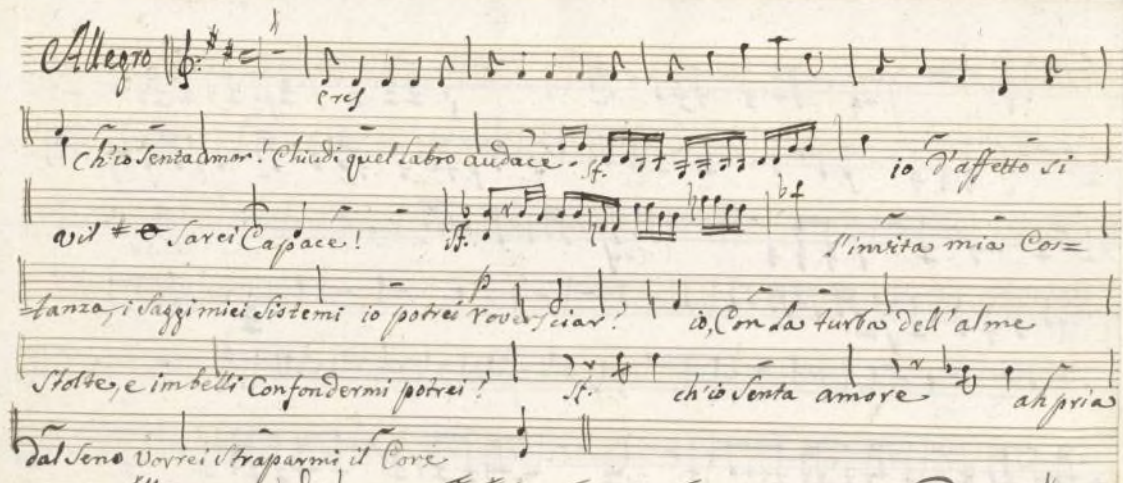 Allegro
cres
Ch'io senta amor! Chiudi quel labro audace. sf. io d'affetto si
vil sarei Capace! sf. l'invita mia Cos=
=tanza, i saggi miei sistemi io potrei roversciar! io, Con la turba dell'alme
stolte, e imbelli Confondermi potrei! sf. ch'io senta amore ah pria
dal seno vorrei straparmi il Core